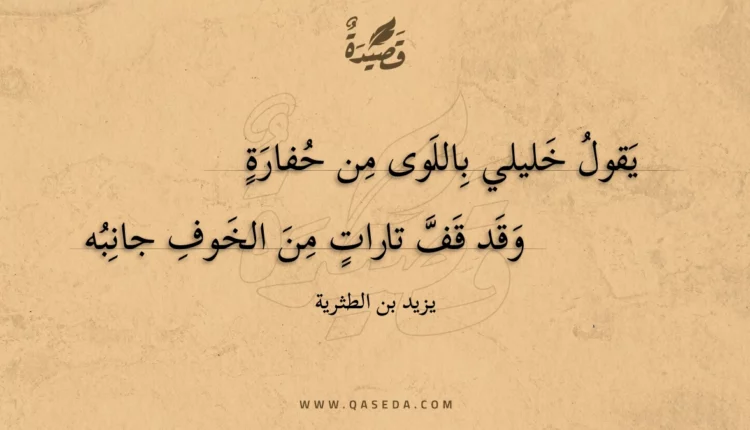 قَصِيْدَةٌ
يَقولُ خَليلي بِاللَوى مِن حُفارَةٍ
وَقَد قَفَّ تاراتٍ مِنَ الخَوفِ جانِبُه
يزيد بن الطثرية
WWW.QASEDA.COM